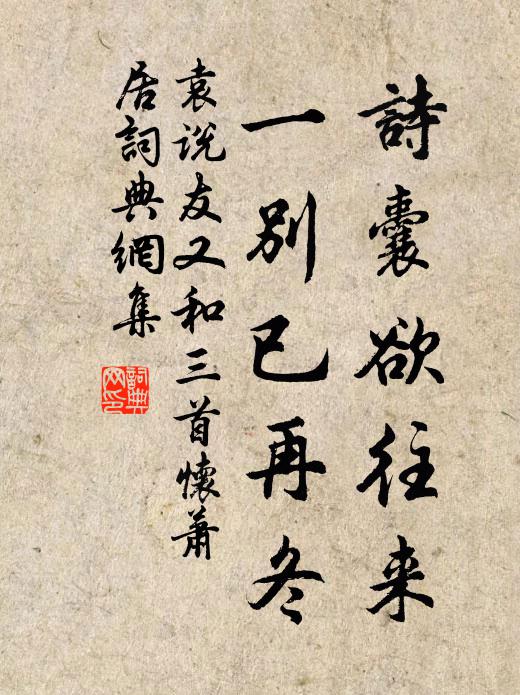 詩囊欲往来
一别已再冬
袁说友又和三首懷蕭
居詞典網集
詞典
网印